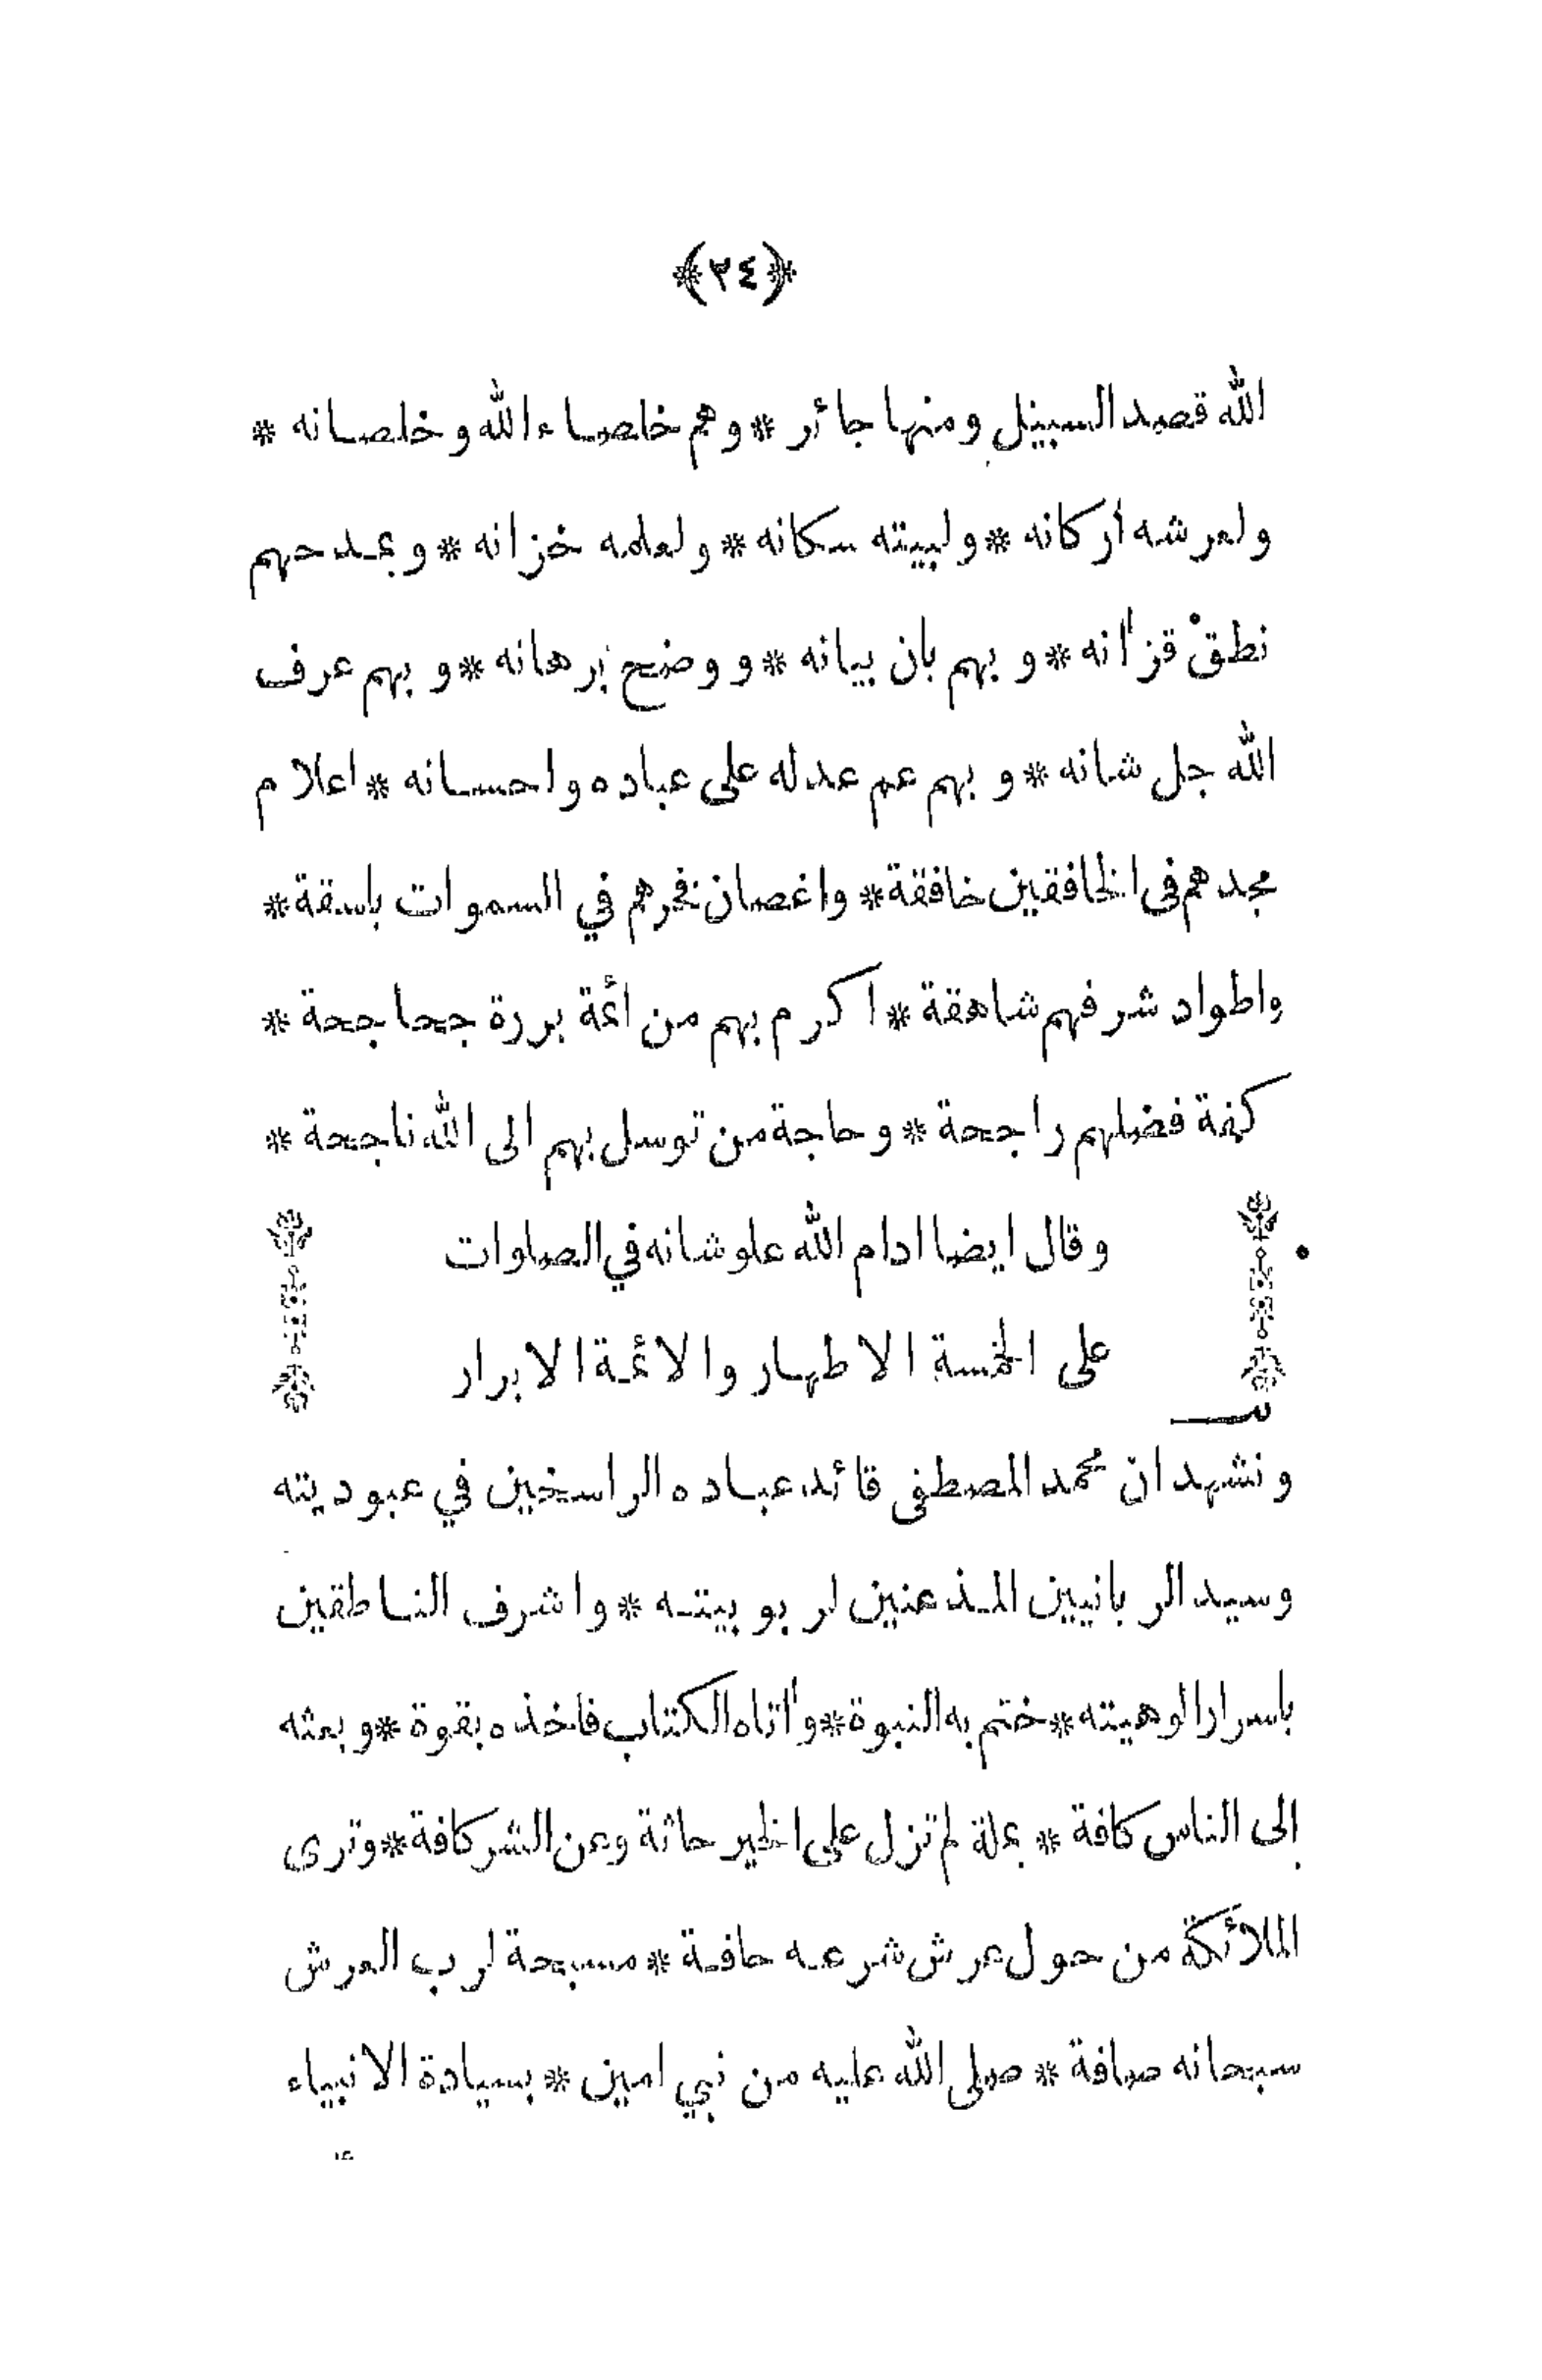 ﴿٢٤﴾
الله قصد السبيل ومنها جائر * وهم خلصاء الله وخلصانه *
ولعرشه أركانه * ولبيته سكانه * ولعلمه خزانه * وبمدحهم
نطق قرأنه * وبهم بان بيانه * ووضح برهانه * وبهم عرف
الله جل شانه * وبهم عم عدله على عباده واحسانه * اعلام
مجدهم فى الخافقين خافقة * واغصان فخرهم في السموات باسقة *
واطواد شرفهم شاهقة * اكرم بهم من ائمة بررة جحاجحة *
كفة فضلهم راجحة * وحاجة من توسل بهم الى الله ناجحة *
وقال ايضا ادام الله علو شانه في الصلوات
على الخمسة الاطهار والائمة الابرار
ونشهد ان محمد المصطفى قائد عباده الراسخين في عبوديته
وسيد الربانيين المذعنين لربوبيته * واشرف الناطقين
باسرار الوهيته * ختم به النبوة * وأتاه الكتاب فاخذه بقوة * وبعثه
إلى الناس كافة * بملة لم تزل على الخير حاثة وعن الشر كافة * وترى
الملائكة من حول عرش شرعه حافة * مسبحة لرب العرش
سبحانه صافة * صلى الله عليه من نبي امين * بسيادة الانبياء